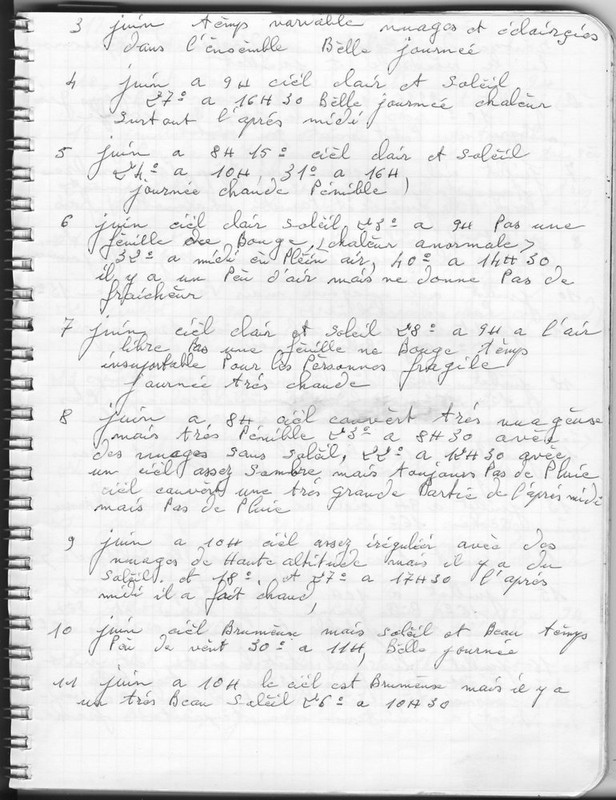 3 juin têmps variable nuages et éclaircies
dans l'ênsêmble Bèlle journeé
4 juin a 9H cièl clair et Solêil
27º a 16H30 Bèlle journeé chalêur
Surtout l'aprés midi
5 juin a 8H 15º cièl clair et Solêil
24º a 10H, 31º a 16H
journeé chaude Pénible)
6 juin cièl clair Soleil 23º a 9H Pas une
fêuille ne Bouge, (chalêur anormale)
33º a midi ên Plêin air, 40º a 14H30
il y a un Pêu d'air mais ne donne Pas de
fraichêur
7 juin, cièl clair et Soleil 28º a 9H a l'air
libre Pas une fêuille ne Bouge têmps
insuportable Pour les Pèrsonnes fragile
journeé trés chaude
8 juin a 8H cièl couvèrt trés nuagêuse
mais trés Pénible 23º a 8H30 avèc
des nuages Sans Soleil, 22º a 12H30 avèc
un cièl assez Sombre mais toujours Pas de Pluie
cièl couvèrt une trés Grande Partie de l'aprés midi
mais Pas de Pluie
9 juin a 10H cièl assez iréguliér avèc des
nuages de Haute altitude mais il y a du
Solêil. et 18º. et 27º a 17H30 l'aprés
midi il a fait chaud,
10 juin cièl Brumêuse mais soléil et Beau têmps
Pêu de vent 30º a 11H, Bèlle journeé
11 juin a 10H le cièl est Brumêuse mais il y a
un trés Beau Solêil 26º a 10H30